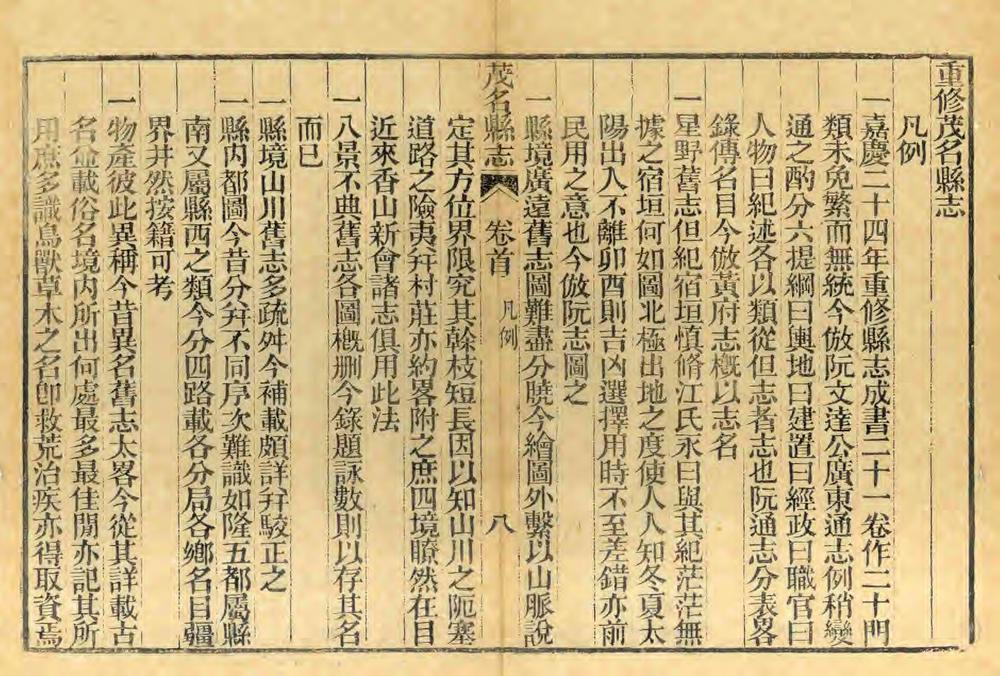 重修茂名縣志
凡例
一嘉慶二十四年重修縣志成書二十一卷作二十門
類未免繁而無統今倣阮文達公廣東通志例稍變
通之酌分六提綱曰輿地曰建置曰經政曰職官曰
人物曰紀述各以類從但志者志也阮通志分表畧
錄傳名目今倣黃府志槪以志名
一星野舊志但紀宿垣慎脩江氏永曰與其紀茫茫無
據之宿垣何如圖北極出地之度使人人知冬夏太
陽出入不離卯酉則吉凶選擇用時不至差錯亦前
民用之意也今倣阮志圖之
一縣境廣遠舊志圖難盡分曉今繪圖外繫以山脈說
茂名縣志 卷首 凡例 八
定其方位界限究其榦枝短長因以知山川之阨塞
道路之險夷幷村莊亦約畧附之庶四境瞭然在目
近來香山新會諸志俱用此法
一八景不典舊志各圖槪刪今錄題詠數則以存其名
而已
一縣境山川舊志多疏舛今補載頗詳幷駮正之
一縣內都圖今昔分幷不同序次難識如隆五都屬縣
南又屬縣西之類今分四路載各分局各鄉名目疆
界井然按籍可考
一物產彼此異稱今昔異名舊志太畧今從其詳載古
名並載俗名境內所出何處最多最佳閒亦記其所
用庶多識鳥獸草木之名卽救荒治疾亦得取資焉